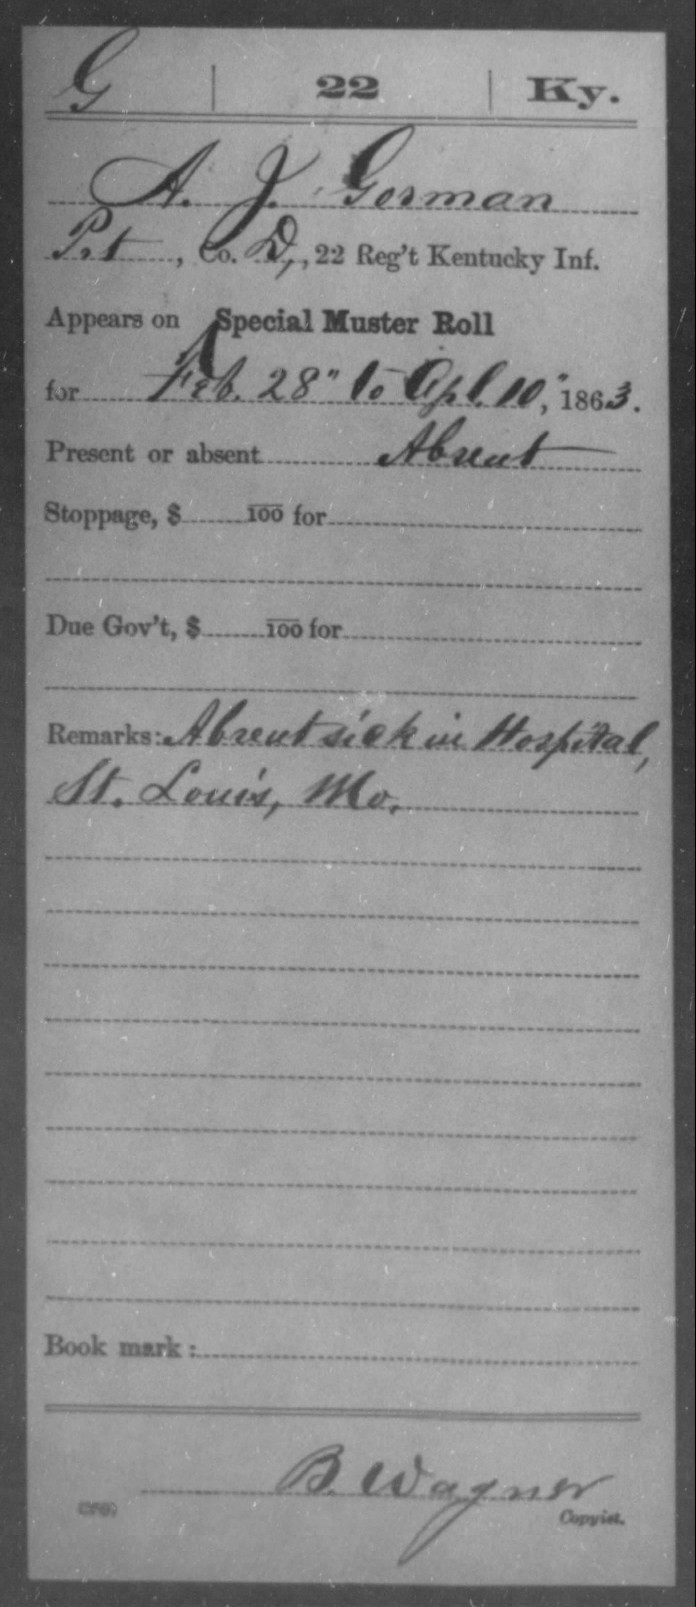 G | 22 | Ky.
A. J. Gorman
Pvt, Co. D, 22 Reg't Kentucky Inf.
Appears on Special Muster Roll
for Feb. 28" to Apl. 10", 1863.
Present or absent Absent
Stoppage, $ 100 for
Due Gov't, $ 100 for
Remarks: Absent sick in Hospital,
St. Louis, Mo.
Book mark:
B. Wagner
Copyist.